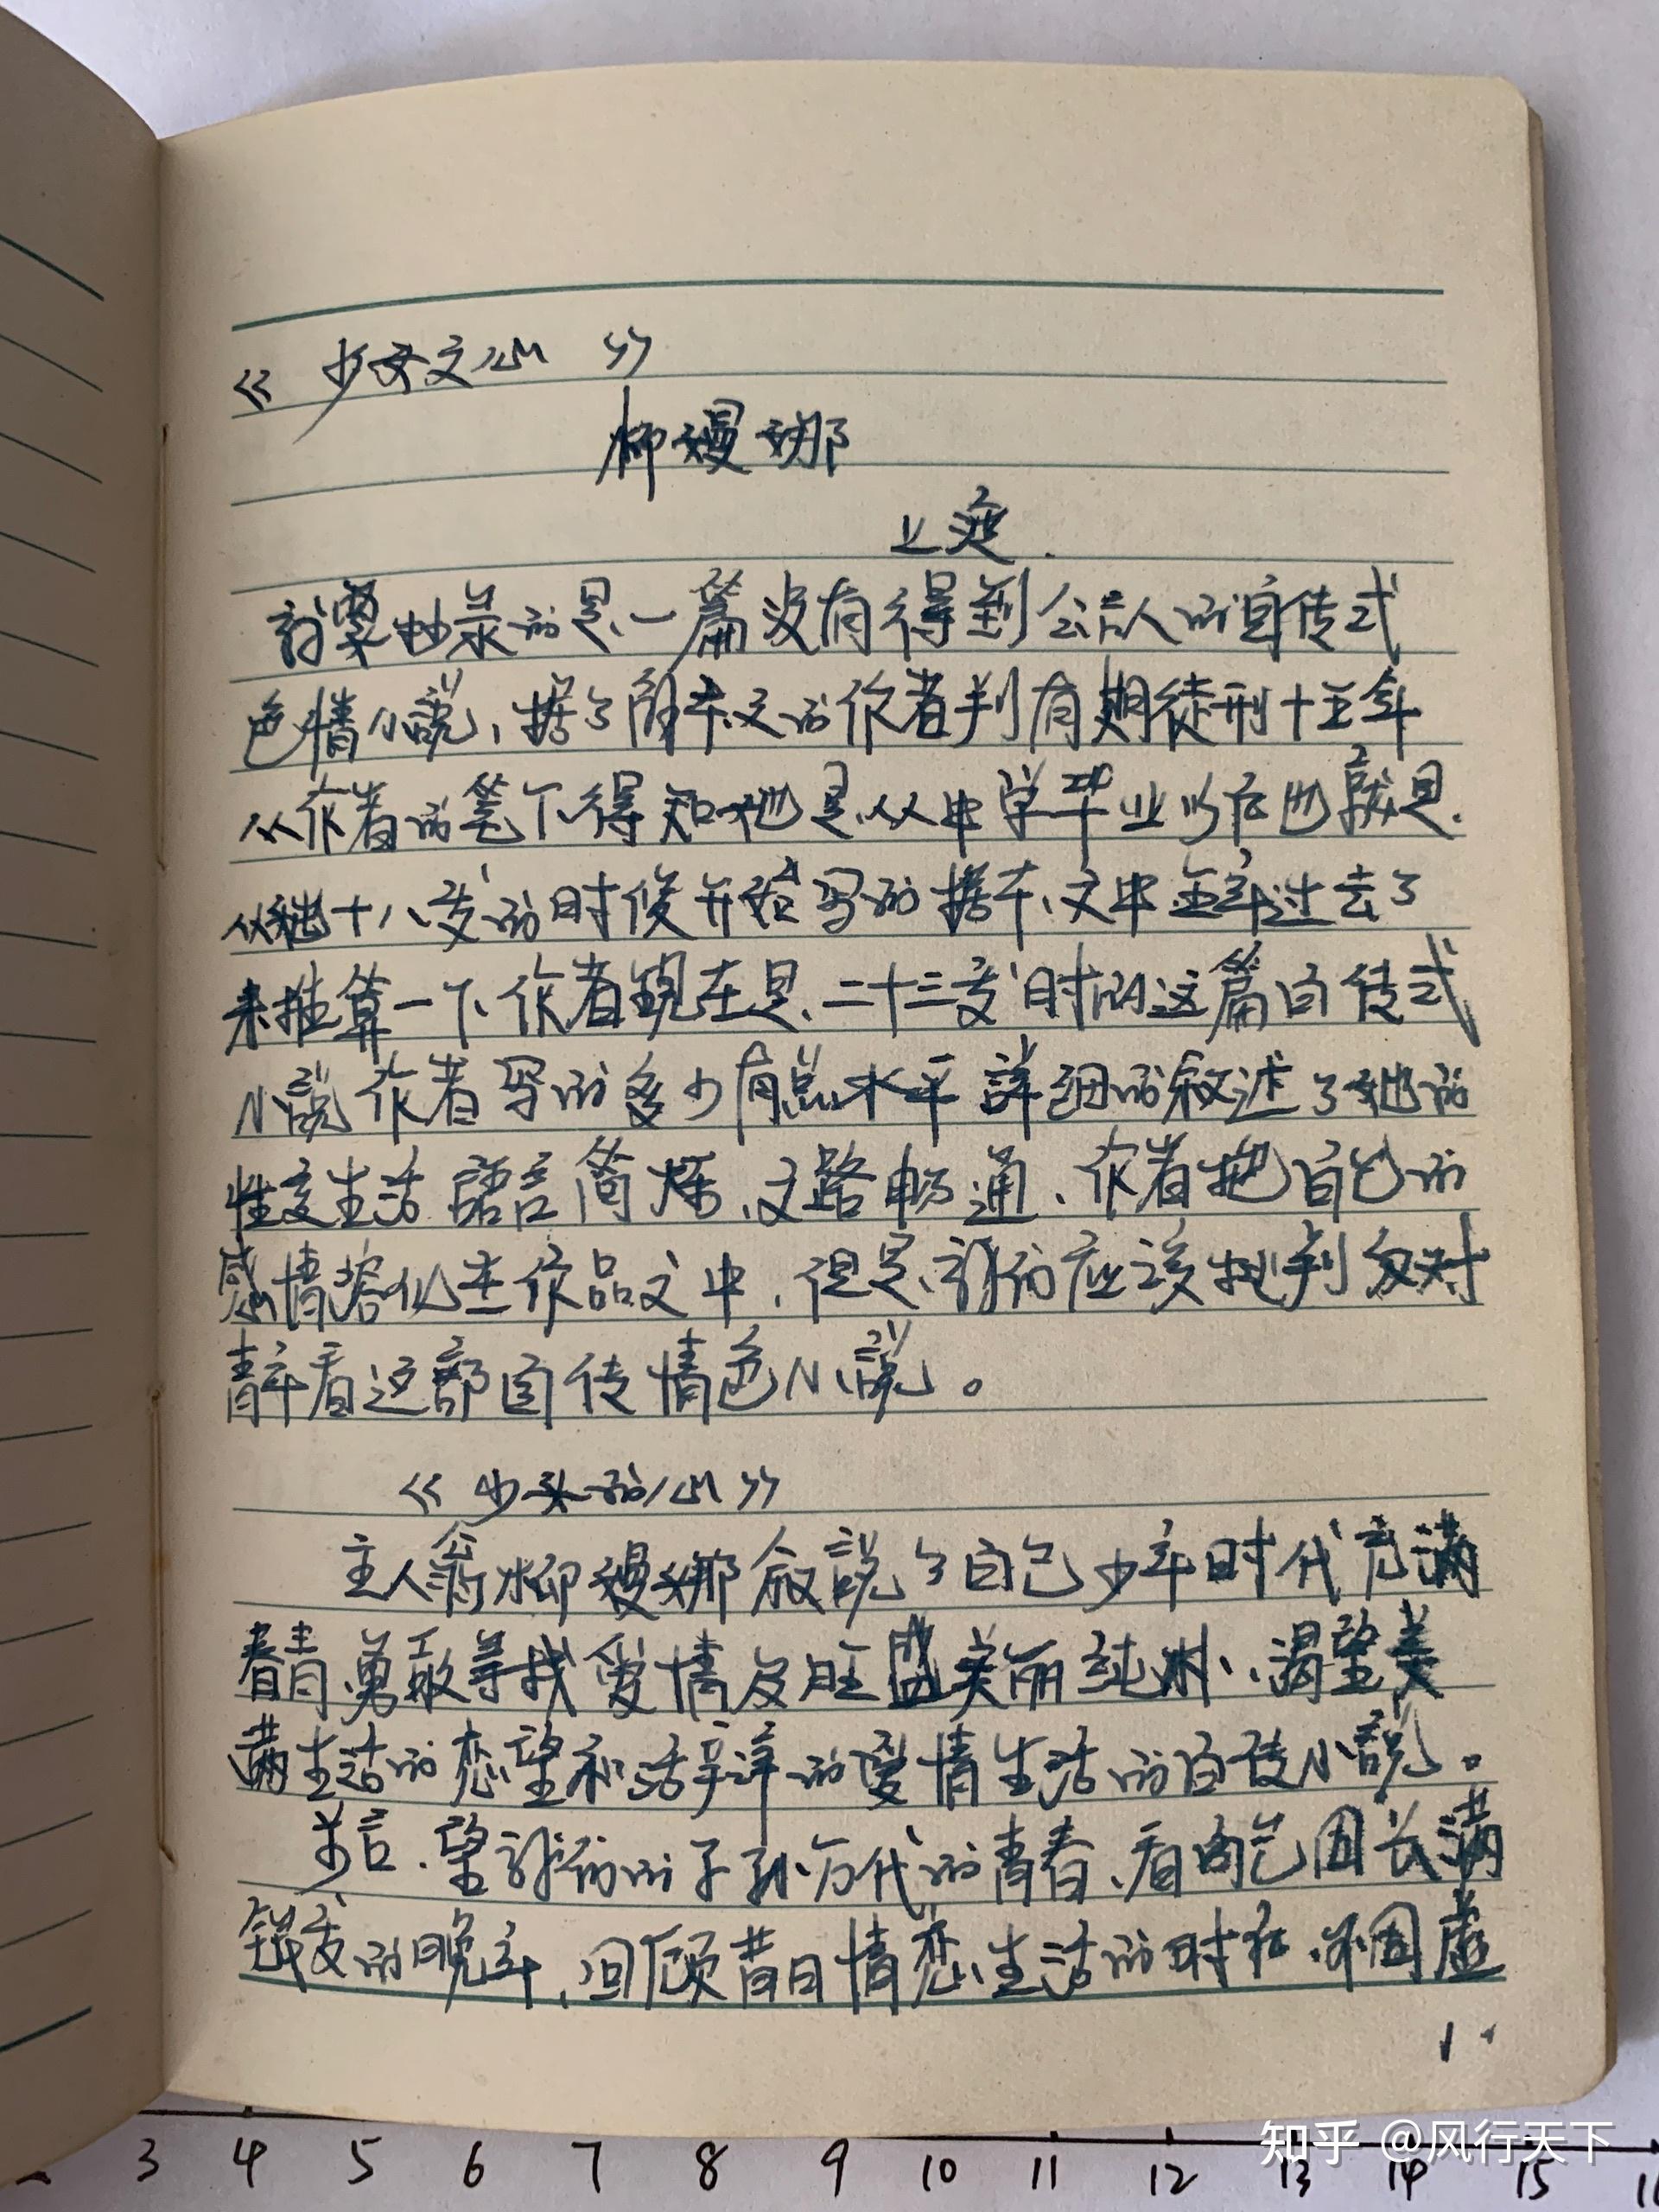 《少女之心》
柳嫚娜
上海
我窝抄录的是一篇没有得到公诸人的自传式
色情小説、据了解本文的作者判有期徒刑十五年
从作者的笔下得知她是从中学毕业以后也就是
从她十八岁的时候开始写的据本文中五年过去了
来推算一下作者現在是二十三岁时的这篇自传式
小説作者写的多少有点水平詳细的叙述了她的
性交生活 語言简炼、文路畅通、作者把自己的
感情溶化在作品文中，但是我们应该批判反对
看这部自传情色小説。
《少女的心》
主人翁柳嫚娜叙説了自己少年时代充满
青春勇敢寻找爱情及旺盛美丽纯洁、渴望美
满生活的恋望和活 的爱情生活的自传小説。
言、望我们的子孙万代的青春、看自己因长满
的晚年，回顾昔日情恋生活的时候、不因虚
1
知乎 @风行天下
3 4 5 6 7 8 9 10 11 12 13 14 15 16